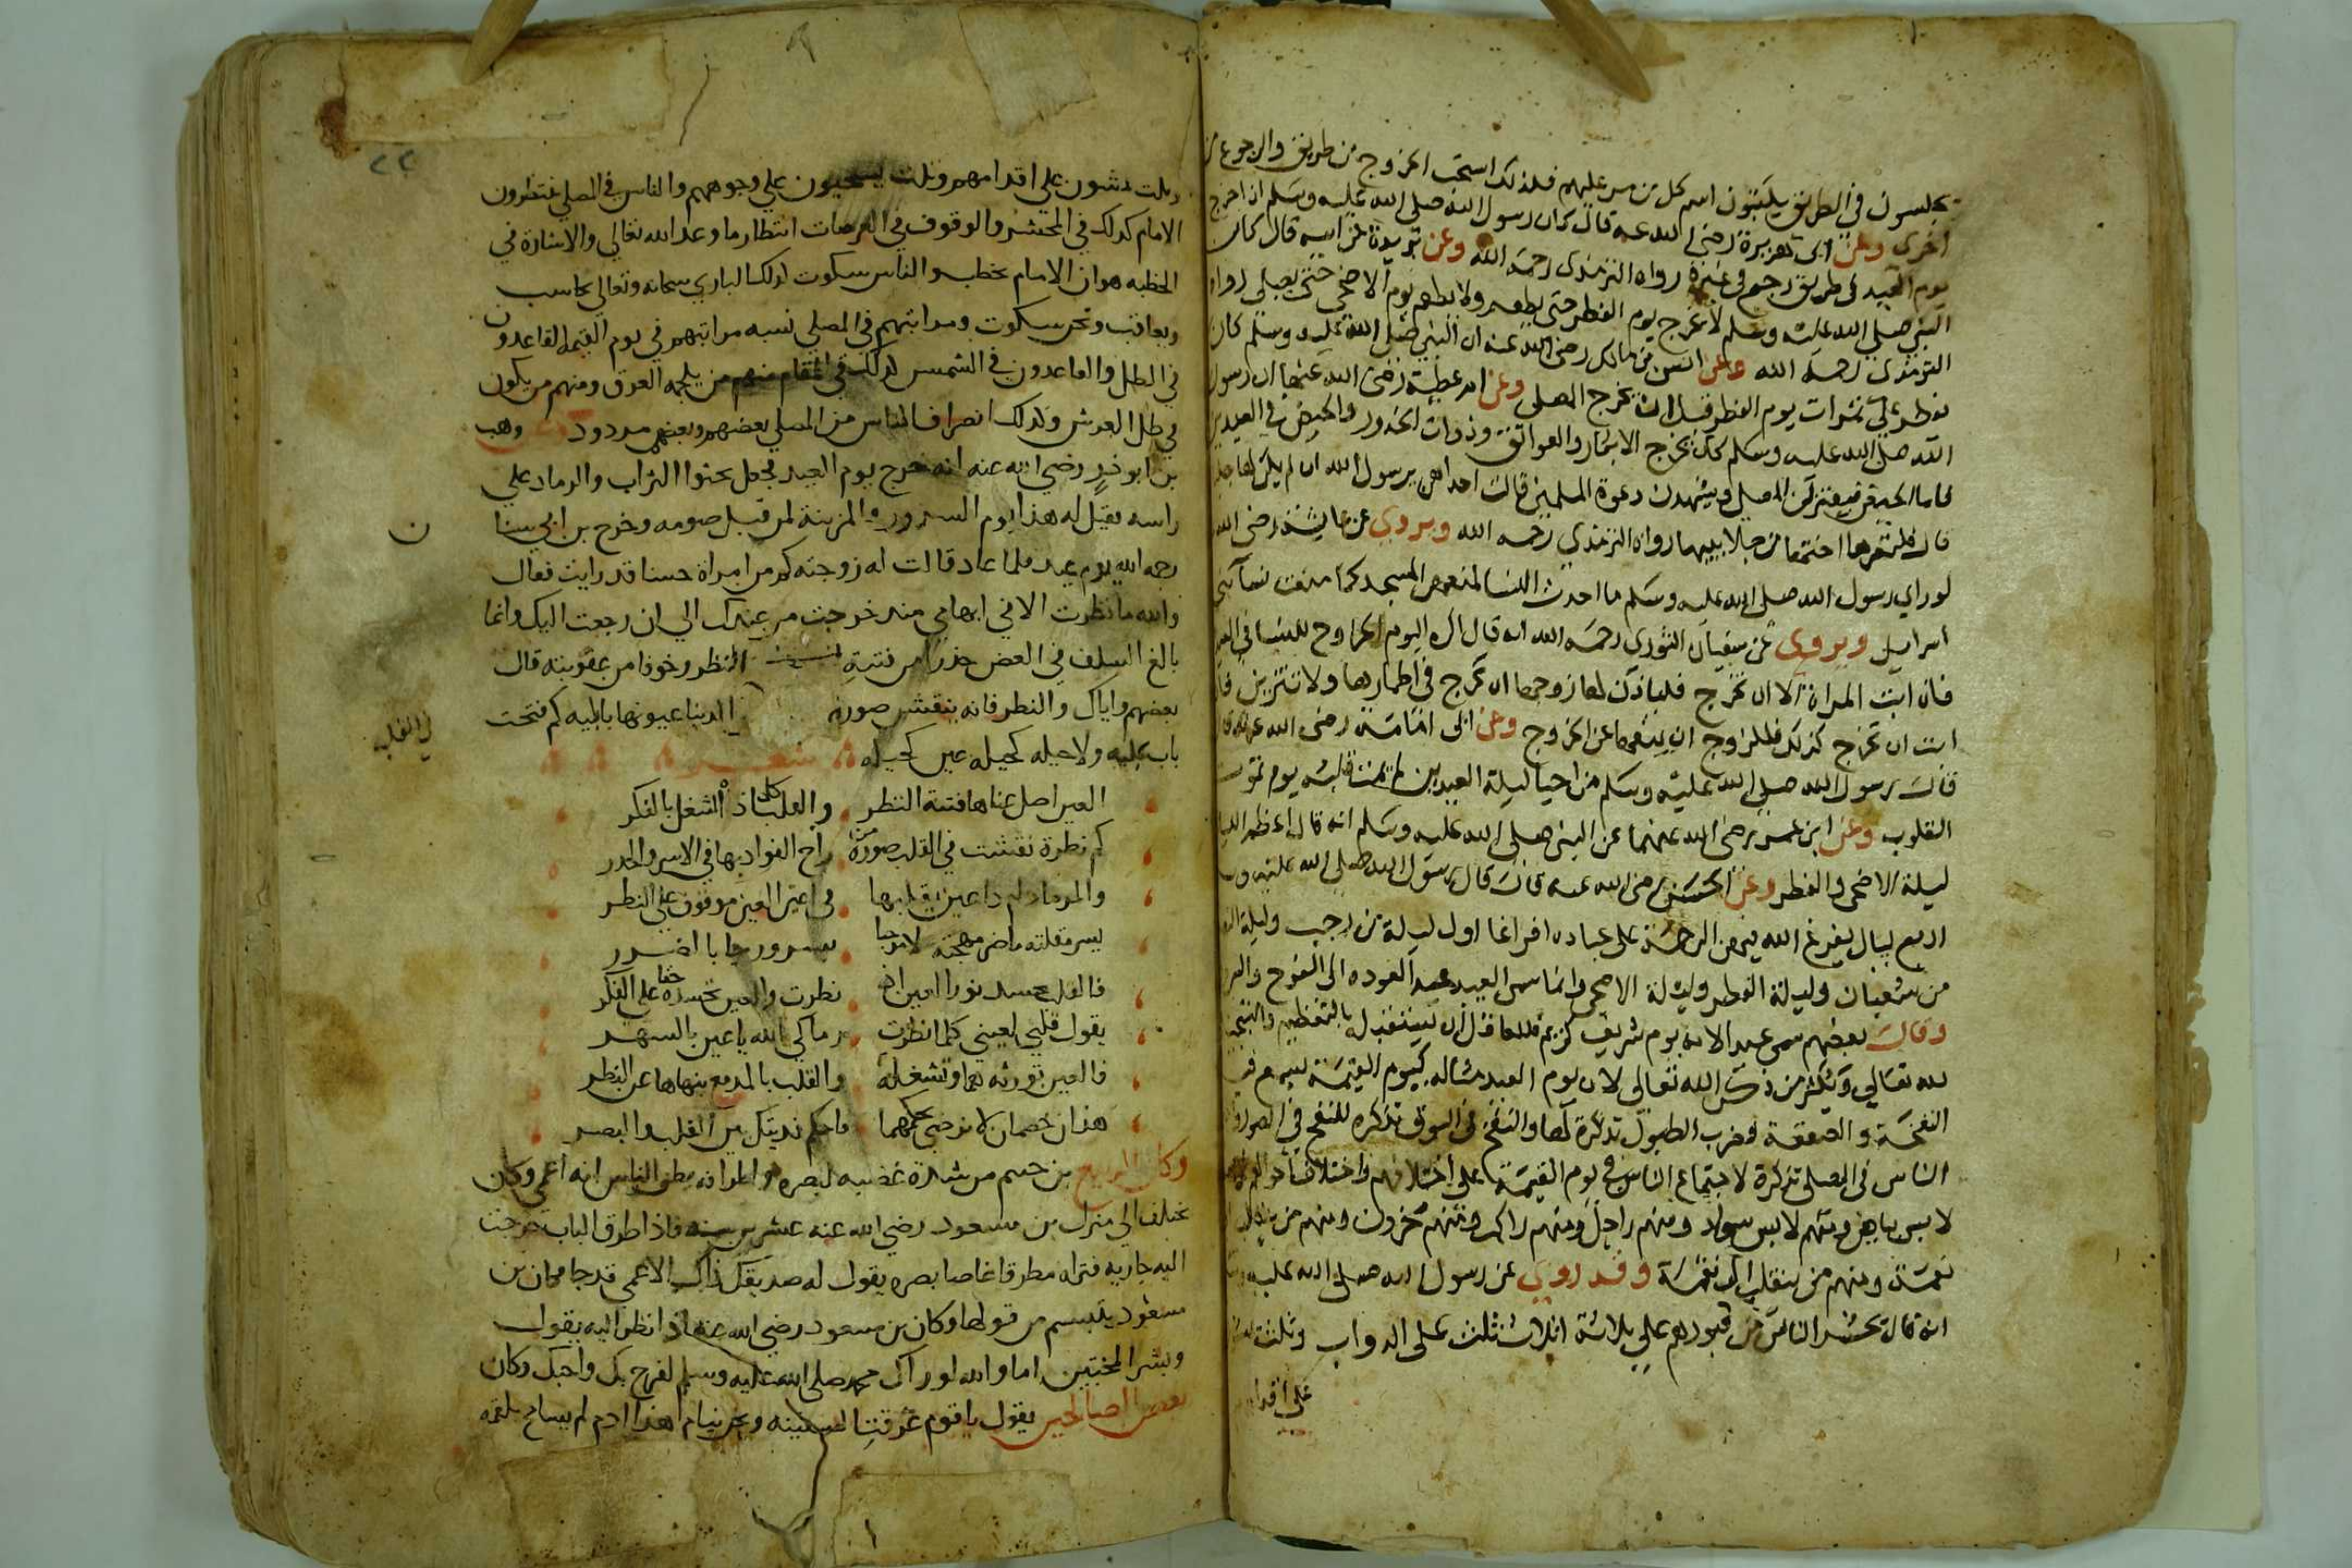 يجلسون في الطريق يكتبون اسم كل من مر عليهم فلذلك استحب الخروج من طريق والرجوع من
اخرى وعن ابى هريرة رضى الله عنه قال كان رسول الله صلى الله عليه وسلم اذا خرج
يوم العيد فى طريق رجع فى غيره رواه الترمذى رحمه الله وعن بريدة عن ابيه قال كان
النبى صلى الله عليه وسلم لا يخرج يوم الفطر حتى يطعم ولا يطعم يوم الاضحى حتى يصلى رواه
الترمذى رحمه الله وعن انس بن مالك رضى الله عنه ان النبى صلى الله عليه وسلم كان
يفطر على تمرات يوم الفطر قبل ان يخرج المصلى وعن ام عطية رضى الله عنها ان رسول
الله صلى الله عليه وسلم كان يخرج الابكار والعواتق وذوات الخدور والحيض في العيدين
فاما الحيض فيعتزلن المصلى ويشهدن دعوة المسلمين قالت احداهن يرسول الله ان لم يكن لها جلباب
قال فلتعرها اختها من جلابيبها رواه الترمذي رحمه الله ويروي عن عايشة رضى الله
لو راي رسول الله صلى الله عليه وسلم ما احدث النسا لمنعهن المسجد كما منعت نسا بنى
اسرايل ويروى عن سفيان الثورى رحمه الله انه قال اكره اليوم الخروج للنسا في العيد
فان ابت المراة الا ان تخرج فلياذن لها زوجها ان تخرج في اطمارها ولا تتزين فان
ابت ان تخرج كذلك فللزوج ان يمنعها عن الخروج وعن ابى امامة رضى الله عنه قال
قال رسول الله صلى الله عليه وسلم من احيا ليلة العيدين لم يمت قلبه يوم تموت
القلوب وعن ابن عمر رضى الله عنهما عن النبى صلى الله عليه وسلم انه قال اعظم الليالى
ليلة الاضحى والفطر وعن الحسن رضى الله عنه قال قال رسول الله صلى الله عليه وسلم
اربع ليال يفرغ الله فيهن الرحمة على عباده افراغا اول ليلة من رجب وليلة النصف
من شعبان وليلة الفطر وليلة الاضحى وانما سمى العيد عيدا لعوده الى الفرح والسرور
وقال بعضهم سمى عيد الانه يوم شريف كريم فللعاقل ان يستقبله بالتعظيم
لله تعالي ويكثر من ذكر الله تعالى لان يوم العيد مثاله كيوم القيمة يسمع فيه
النفخة والصعقة فضرب الطبول تذكرة لها والنفخ في البوق تذكره للنفخ في الصور
الناس في المصلى تذكرة لاجتماع الناس في يوم القيمة على اختلافهم واختلاف احوالهم
لابس بياض ومنهم لابس سواد ومنهم راجل ومنهم راكب ومنهم محزون ومنهم من
نعمة ومنهم من ينقلب الى نقمة وقد روي عن رسول الله صلى الله عليه وسلم
انه قال يحشر الناس من قبورهم علي ثلاثة اثلاث ثلث على الدواب وثلث
على اقدا
٢٢
وثلث يمشون علي اقدامهم وثلث يسحبون علي وجوههم والناس في المصلي ينتظرون
الامام كذلك في المحشر والوقوف في العرصات انتظار ما وعد الله تعالي والاشارة في
الخطبه هو ان الامام يخطب والناس سكوت كذلك الباري سبحانه وتعالي يحاسب
ويعاتب ونحن سكوت ومراتبهم في المصلي نسبه مراتبهم في يوم القيمه القاعدون
في الظل والقاعدون في الشمس كذلك في المقام منهم من يلجمه العرق ومنهم من يكون
في ظل العرش وكذلك انصراف الناس من المصلي بعضهم وبعضهم مردود وهب
بن ابو خير رضي الله عنه انه خرج يوم العيد فجعل يحثوا التراب والرماد علي
راسه فقيل له هذا يوم السرور والزينة لمن قبل صومه وخرج بن ابي سنا
رحمه الله يوم عيد فلما عاد قالت له زوجته كم من امراة حسنا قد رايت فقال
والله ما نظرت الا في ابهامي منذ خرجت من عندك الي ان رجعت اليك وانما
بالغ السلف في الغض حذرا من فتنة النظر وخوفا من عقوبته قال
بعضهم واياك والنظر فانه ينقش صورة الدنيا عيونها بالبليه كم فتحت
في القلب
باب بليه ولا حيله كحيله عين كحيله شعر
العين اصل عناها فتنة النظر والقلب كل اذ الشغل بالفكر
كم نظرة نقشت في القلب صورة من راح الفواد بها في الاسر والحذر
والمرء مادام ذا عين يقلبها في اعين العين موقوف علي النظر
يسر مقلته ما ضر مهجته لا مرحبا بسرور جا با الضرر
فالقلب يحسد نور العين ان نظرت والعين تحسده حقا على الفكر
يقول قلبي لعيني كلما نظرت رماك الله يا عين بالسهر
فالعين تورثه هما وتشغله والقلب بالدمع ينهاها عن النظر
هذان خصمان لا نرضي بحكمهما فاحكم فديتك بين القلب والبصر
وكان الربيع بن خيثم من شدة غضه لبصره واطراقه يظن الناس انه اعمى وكان
يختلف الي منزل بن مسعود رضي الله عنه عشرين سنه فاذا طرق الباب خرجت
اليه جاريه فتراه مطرقا غاضا بصره يقول له صديقك ذاك الاعمى قد جا فكان بن
مسعود يتبسم من قولها وكان بن مسعود رضي الله عنه اذا نظر اليه يقول
وبشر المخبتين اما والله لو راك محمد صلى الله عليه وسلم لفرح بك واحبك وكان
بعض الصالحين يقول يا قوم غرقت السفينه ونحن نيام هذا ادم لم يسامح بلقمه